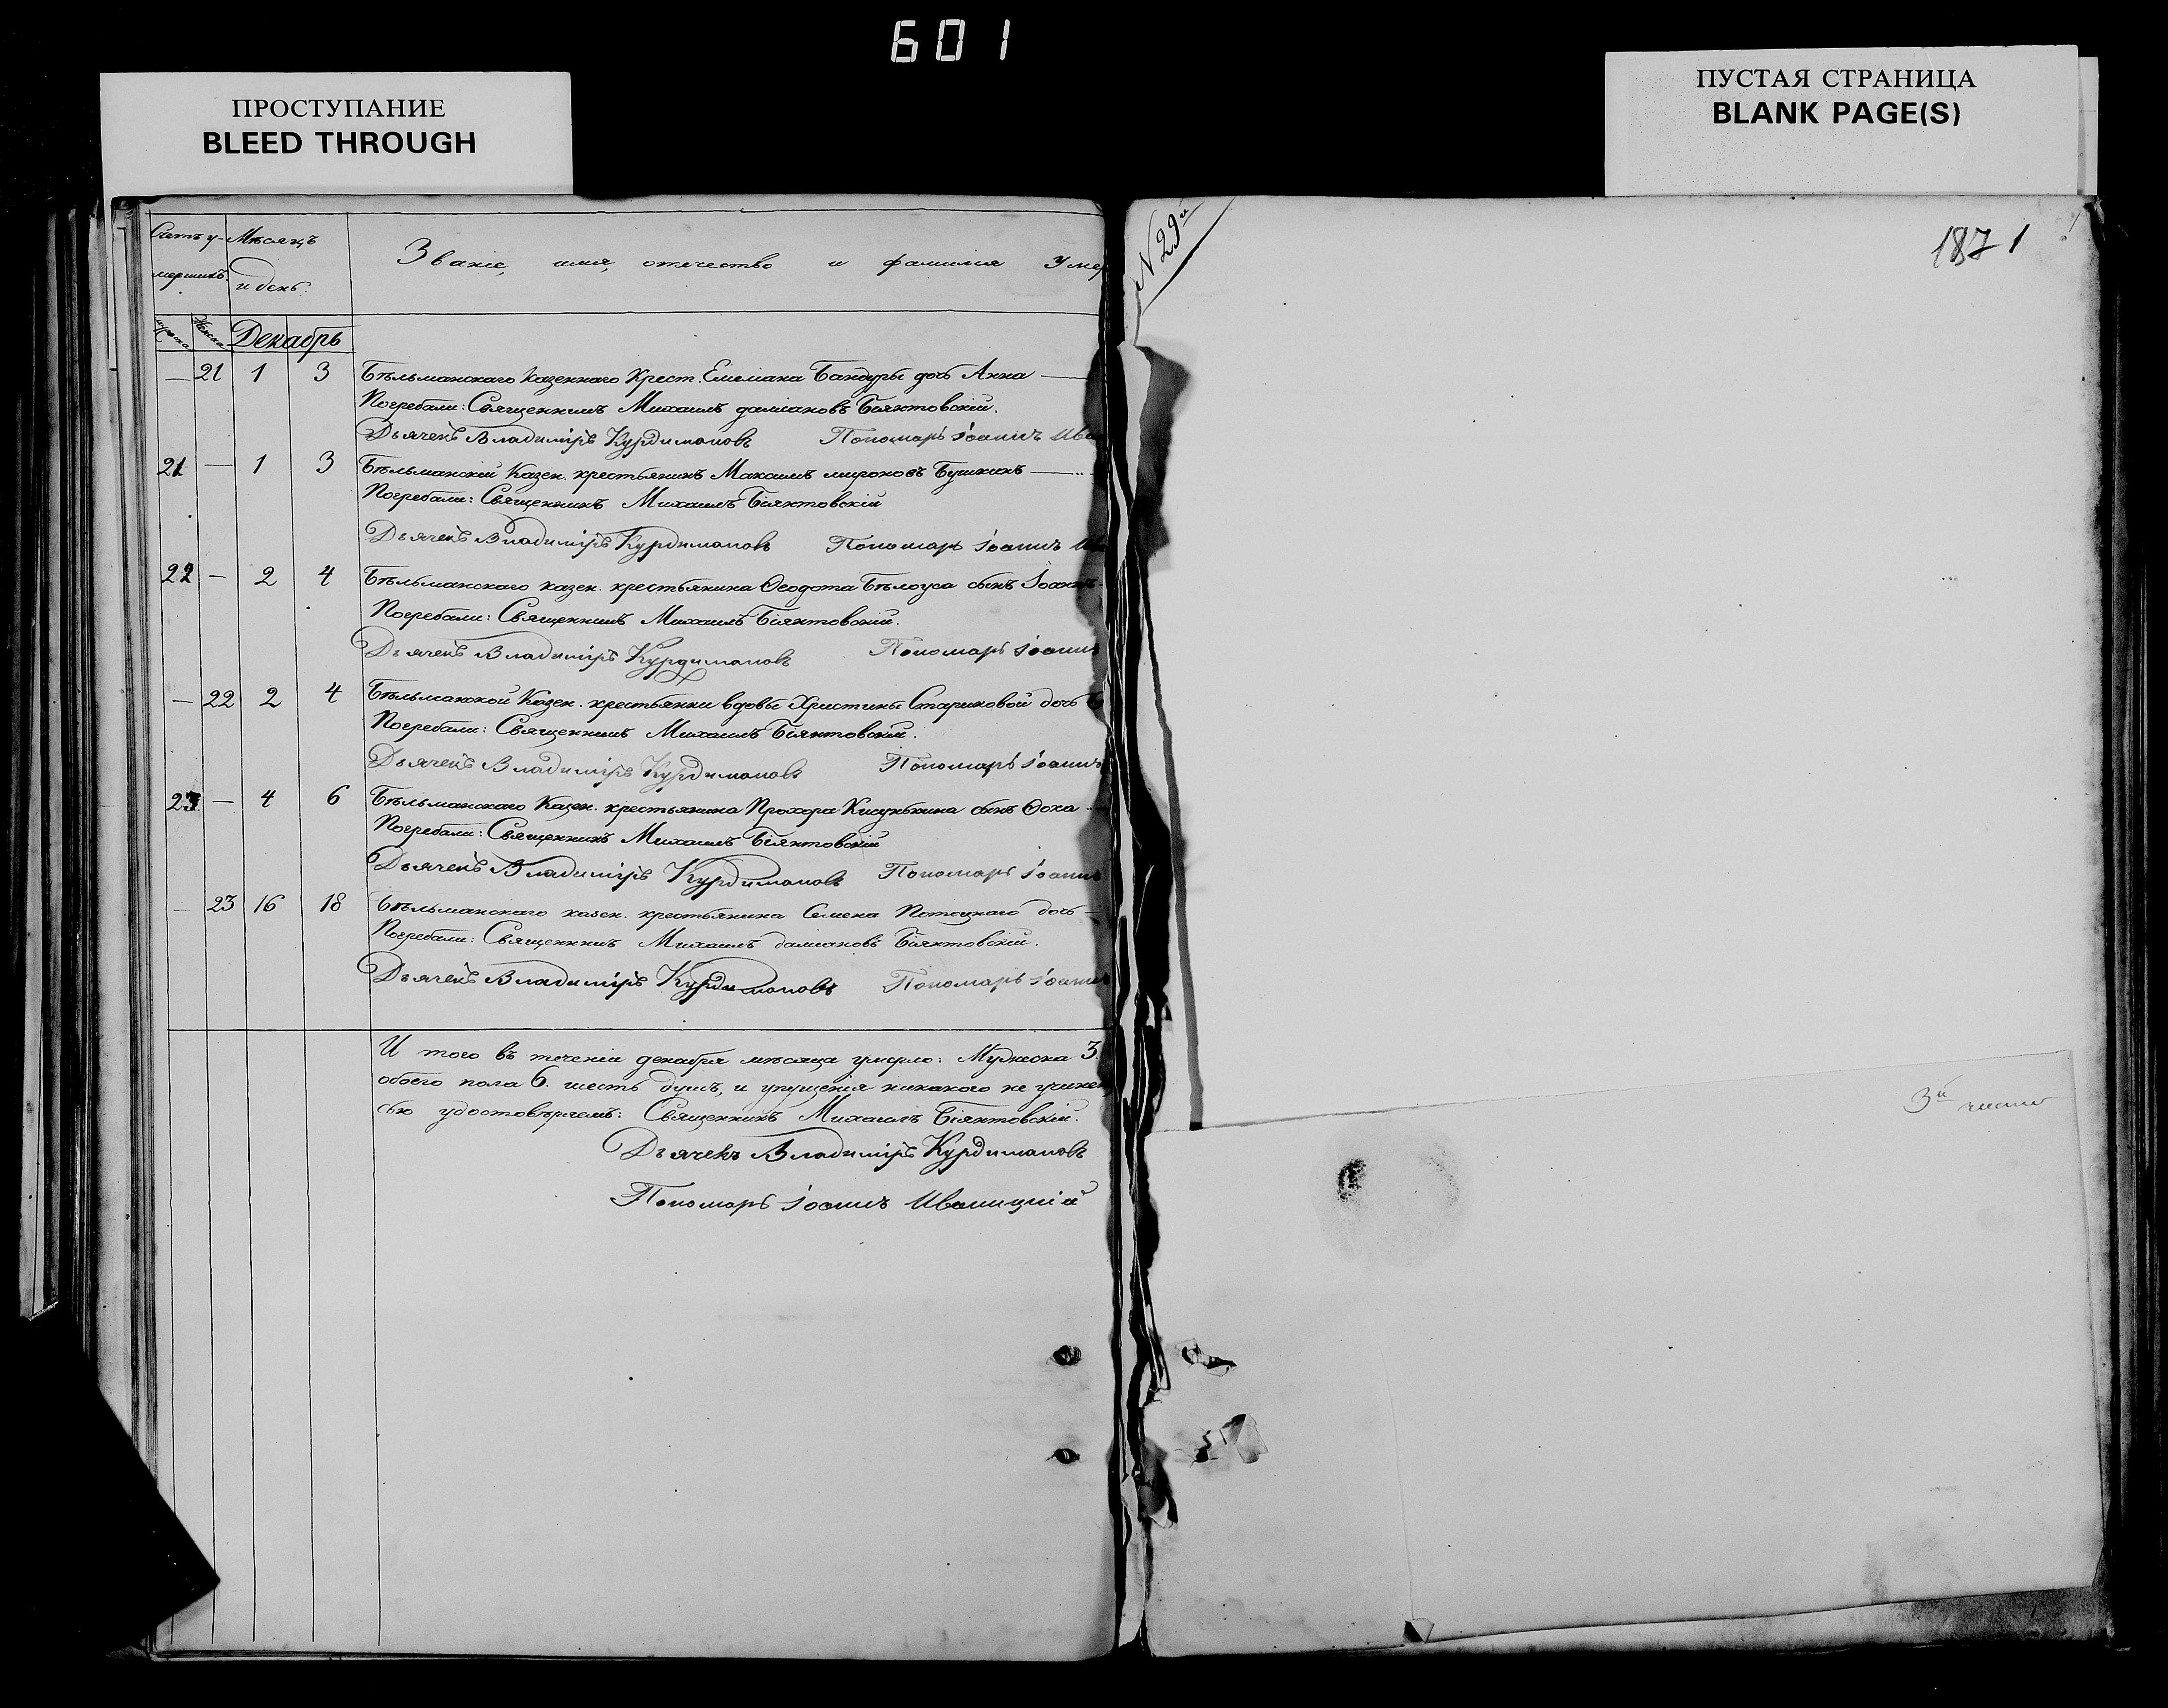 601
ПРОСТУПАНИЕ
BLEED THROUGH
ПУСТАЯ СТРАНИЦА
BLANK PAGE(S)
Счетъ у- Мѣсяцъ
мершихъ. и день.
Званіе, имя, отечество и фамилія Умер
Декабрь
— 21 1 3 Бѣльманскаго Казеннаго Крест. Емеліана Бандуры дочь Анна —
Погребали: Священникъ Михаилъ даміановъ Біянтовскій.
Дьячекъ Владиміръ Курдимановъ Пономарь Іоаннъ Ива
21 — 1 3 Бѣльманскій Казен. крестьянинъ Максимъ мироновъ Бушкинъ —
Погребали: Священникъ Михаилъ Біянтовскій
Дьячекъ Владиміръ Курдимановъ Пономарь Іоаннъ
22 — 2 4 Бѣльманскаго казен. крестьянина Ѳеодота Бѣлоуса сынъ Іоаннъ
Погребали: Священникъ Михаилъ Біянтовскій.
Дьячекъ Владиміръ Курдимановъ Пономарь Іоаннъ
— 22 2 4 Бѣльманской Казен. крестьянки вдовы Христины Стариковой дочь
Погребали: Священникъ Михаилъ Біянтовскій.
Дьячекъ Владиміръ Курдимановъ Пономарь Іоаннъ
23 — 4 6 Бѣльманскаго Казен. крестьянина Прохора сынъ Ѳока
Погребали: Священникъ Михаилъ Біянтовскій
Дьячекъ Владиміръ Курдимановъ Пономарь Іоаннъ
— 23 16 18 Бѣльманскаго казен. крестьянина Семена Потоцкаго дочь —
Погребали: Священникъ Михаилъ даміановъ Біянтовскій.
Дьячекъ Владиміръ Курдимановъ Пономарь Іоаннъ
И того въ теченіи декабря мѣсяца умерло: Мужеска 3.
обоего пола 6. шесть душъ, и упущенія никакого не учинен
сью удостовѣряемъ: Священникъ Михаилъ Біянтовскій.
Дьячекъ Владиміръ Курдимановъ
Пономарь Іоаннъ Иваницкій
N 29й
1871
3й